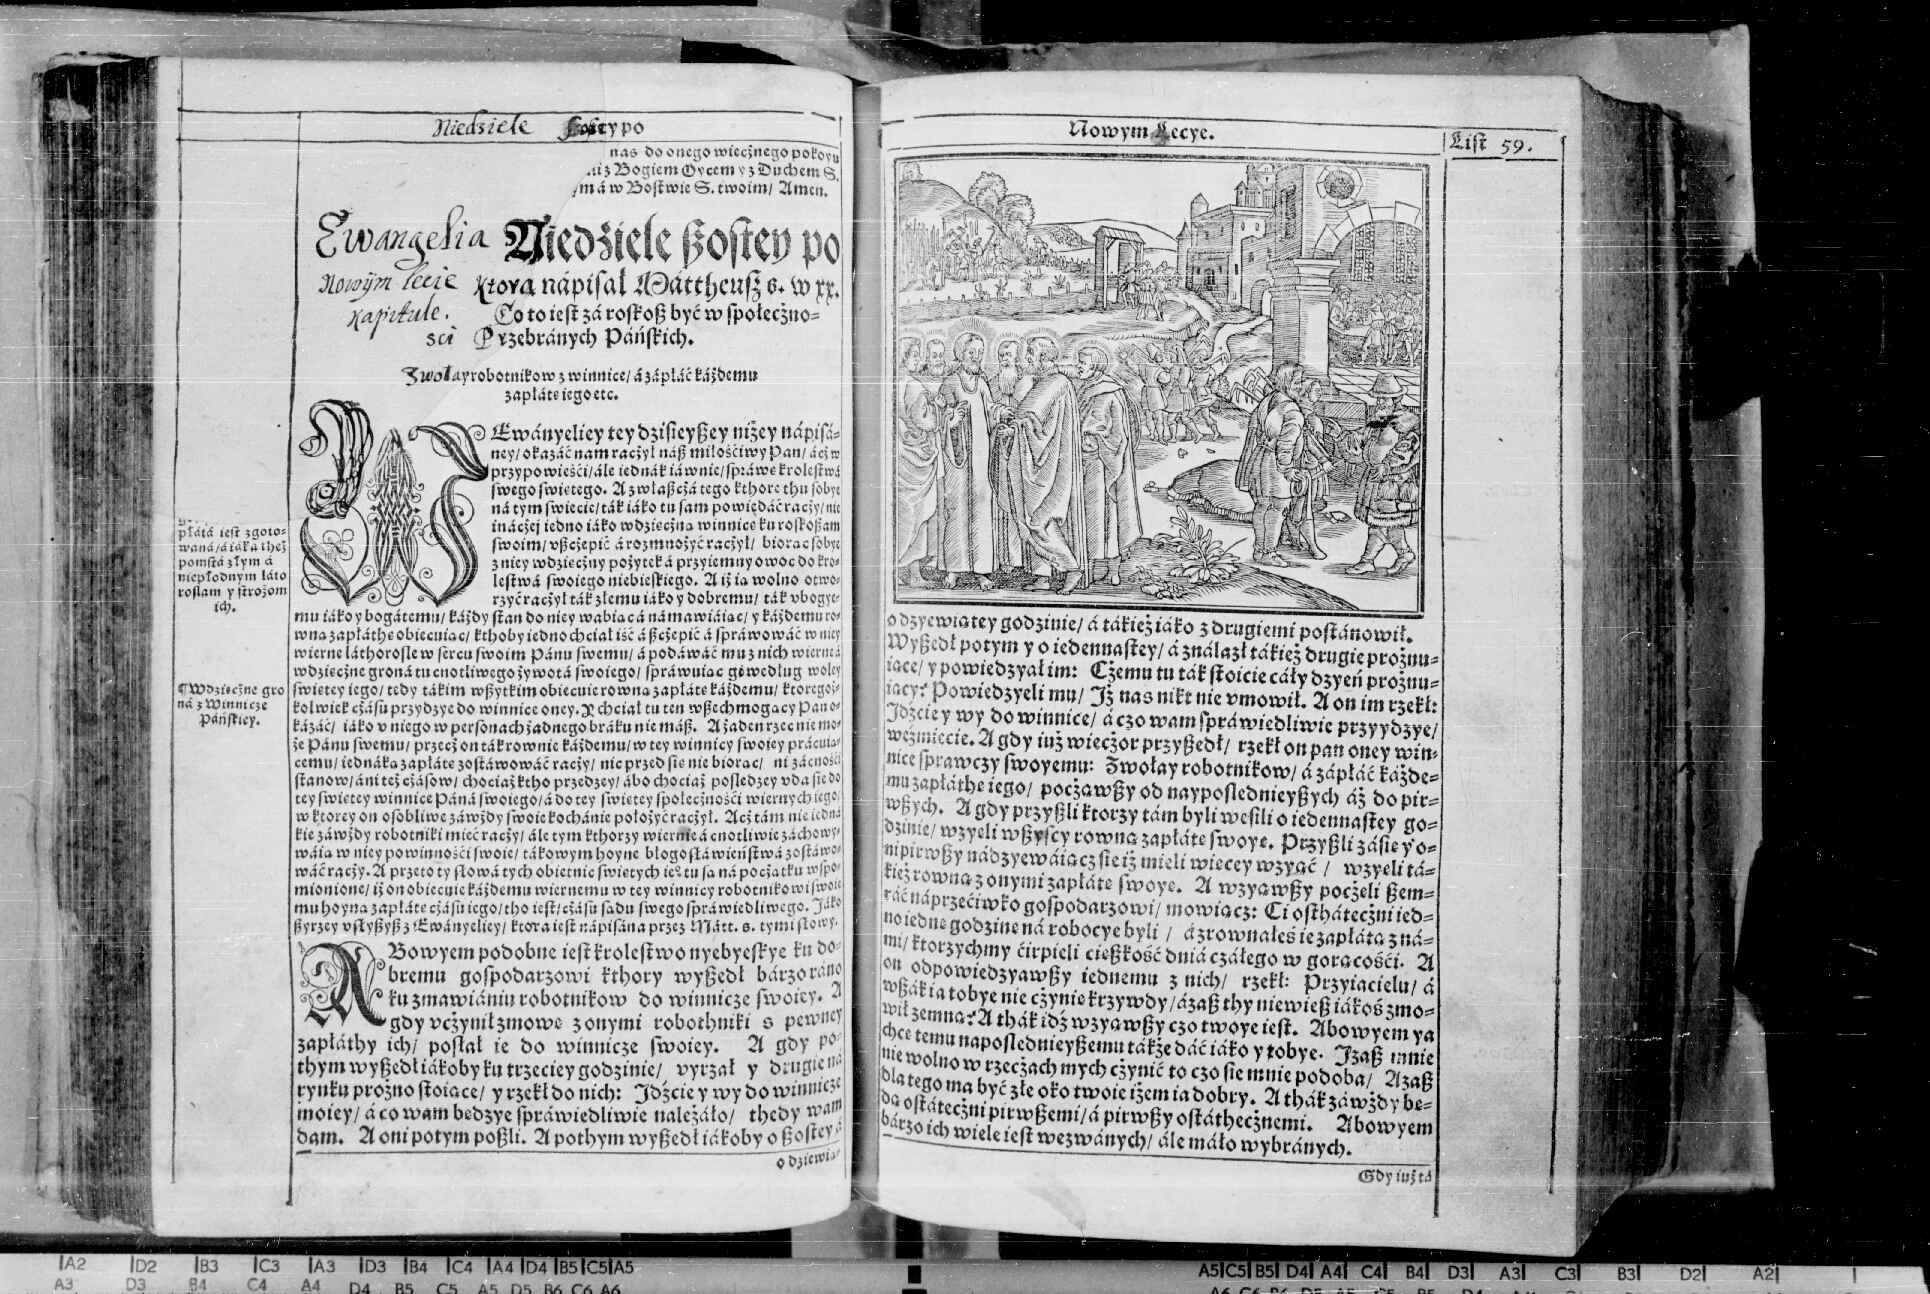 Niedziele ſzoſtey po
nas do onego wiecżnego pokoyu
z Bogiem Oycem y z Duchem S.
w Boſtwie S. twoim/ Amen.
Ewangelia Niedźiele ſzoſtey po
Nowÿm lecie ktora nápiſał Máttheuſz s. w xx.
kapitule. Co to ieſt zá roſkoſz być w społecżno⸗
sci Przebránych Páńſkich.
Zwołay robotnikow z winnice/ á zápłáć káżdemu
zapłáte iego etc.
płátá ieſt zgoto⸗
wána/ á iáka theż
pomſtá złym á
niepłodnym láto
roslam y ſtrożom
ich.
¶ Wdziecżne gro
ná z Winnicże
Páńſkiey.
W Ewányeliey tey dziſieyſzey niżey nápiſá⸗
ney/ okázáć nam racżył náſz miłośćiwy Pan/ ácż w
przypowieśći/ ále iednák iáwnie/ ſpráwe kroleſtwá
ſwego ſwietego. A zwłaſzcżá tego kthore thu ſobye
ná tym ſwiecie/ ták iáko tu ſam powiedáć racży/ nie
inácżej iedno iáko wdziecżna winnice ku roſkoſzam
ſwoim/ vſzcżepić á rozmnożyć racżył/ biorac ſobye
z niey wdziecżny pożytek á przyiemny owoc do kro⸗
leſtwá ſwoiego niebieſkiego. A iż ia wolno otwo⸗
rzyć racżył ták złemu iáko y dobremu/ ták vbogye⸗
mu iáko y bogátemu/ káżdy ſtan do niey wabiac á námawiáiac/ y káżdemu ro⸗
wna zapłáthe obiecuiac/ kthoby iedno chciał iść á ſzcżepić á ſpráwowáć w niey
wierne láthoroſle w ſercu ſwoim Pánu ſwemu/ á podáwáć mu z nich wierne á
wdziecżne groná tu cnotliwego żywotá ſwoiego/ ſpráwuiac ge według woley
ſwietey iego/ tedy tákim wſzytkim obiecuie rowna zapłáte káżdemu/ ktoregoż⸗
kolwiek cżáſu przydzye do winnice oney. Y chciał tu ten wſzechmogacy Pan o⸗
kázáć/ iáko v niego w perſonach żadnego bráku nie máſz. A żaden rzec nie mo⸗
że Pánu ſwemu/ przecż on ták rownie káżdemu/ w tey winnicy ſwoiey prácuia⸗
cemu/ iednáka zapłáte zoſtáwowáć racży/ nie przed ſie nie biorac/ ni zacnośći
ſtanow/ áni też cżáſow/ chociaż ktho przedzey/ ábo chociaż poſledzey vda ſie do
tey ſwietey winnice Páná ſwoiego/ á do tey ſwietey społecżnośći wiernych iego/
w ktorey on oſobliwe záwżdy ſwoie kochánie położyć racżył. Acż tám nie iedná
kie záwżdy robotniki mieć racży/ ále tym kthorzy wiernie á cnotliwie záchowy⸗
wáia w niey powinnośći ſwoie/ tákowym hoyne błogoſłáwieńſtwá zoſtáwo⸗
wáć racży. A przeto ty ſłowá tych obietnic ſwietych ieº tu ſa ná pocżatku wſpo⸗
mionione/ iż on obiecuie káżdemu wiernemu w tey winnicy robotnikowi ſwoie
mu hoyna zapłáte cżáſu iego/ tho ieſt/ cżáſu ſadu ſwego ſpráwiedliwego. Jáko
ſzyrzey vſłyſzyſz z Ewányeliey/ ktora ieſt nápiſána przez Mátt. s. tymi ſłowy.
ABowyem podobne ieſt kroleſtwo nyebyeſkye ku do⸗
bremu goſpodarzowi kthory wyſzedł bárzo ráno
ku zmawiániu robotnikow do winnicże ſwoiey. A
gdy vcżynił zmowe z onymi robothniki s pewney
zapłáthy ich/ poſłał ie do winnicże ſwoiey. A gdy po⸗
thym wyſzedł iákoby ku trzeciey godzinie/ vyrzał y drugie ná
rynku prożno ſtoiace/ y rzekł do nich: Jdźcie y wy do winnicże
moiey/ á co wam bedzye ſpráwiedliwie należáło/ thedy wam
dam. A oni potym poſzli. A pothym wyſzedł iákoby o ſzoſtey á
o dziewia⸗
Nowym Lecye.
Liſt 59.
o dzyewiatey godzinie/ á tákież iáko z drugiemi poſtánowił.
Wyſzedł potym y o iedennaſtey/ á ználazł tákież drugie prożnu⸗
iace/ y powiedzyał im: Cżemu tu ták ſtoicie cáły dzyeń prożnu⸗
iacy? Powiedzyeli mu/ Jż nas nikt nie vmowił. A on im rzekł:
Jdźcie y wy do winnice/ á czo wam ſpráwiedliwie przyydzye/
weźmiecie. A gdy iuż wiecżor przyſzedł/ rzekł on pan oney win⸗
nice ſprawczy ſwoyemu: Zwołay robotnikow/ á zápłáć káżde⸗
mu zapłáthe iego/ pocżawſzy od nayposlednieyſzych áż do pir⸗
wſzych. A gdy przyſzli ktorzy tám byli weſzli o iedennaſtey go⸗
dzinie/ wzyeli wſzyſcy rowna zapłáte ſwoye. Przyſzli záſie y o⸗
ni pirwſzy nádzyewáiacz ſie iż mieli wiecey wzyąć/ wzyeli tá⸗
kież rowna z onymi zapłáte ſwoye. A wzyawſzy pocżeli ſzem⸗
ráć náprzećiwko goſpodarzowi/ mowiacz: Ci oſthátecżni ied⸗
no iedne godzine ná robocye byli/ á zrownałeś ie zapłáta z ná⸗
mi/ ktorzychmy ćirpieli cieſzkość dniá czáłego w goracośći. A
on odpowiedzyawſzy iednemu z nich/ rzekł: Przyiacielu/ á
wſzák ia tobye nie cżynie krzywdy/ ázaſz thy niewieſz iákoś zmo⸗
wił zemna? A thák idź wzyawſzy czo twoye ieſt. Abowyem ya
chce temu naposlednieyſzemu tákże dáć iáko y tobye. Jzaſz mnie
nie wolno w rzecżách mych cżynić to czo ſie mnie podoba/ Azaſz
dla tego ma być złe oko twoie iżem ia dobry. A thák záwżdy be⸗
da oſtátecżni pirwſzemi/ á pirwſzy oſtáthecżnemi. Abowyem
bárzo ich wiele ieſt wezwánych/ ále máło wybránych.
Gdy iuż tá
A2 D2 B3 C3 A3 D3 B4 C4 A4 D4 B5 C5 A5
A3 D3 B4 C4 A4 D4 B5 C5 A5 D5 B6 C6 A6
A5 C5 B5 D4 A4 C4 B4 D3 A3 C3 B3 D2 A2